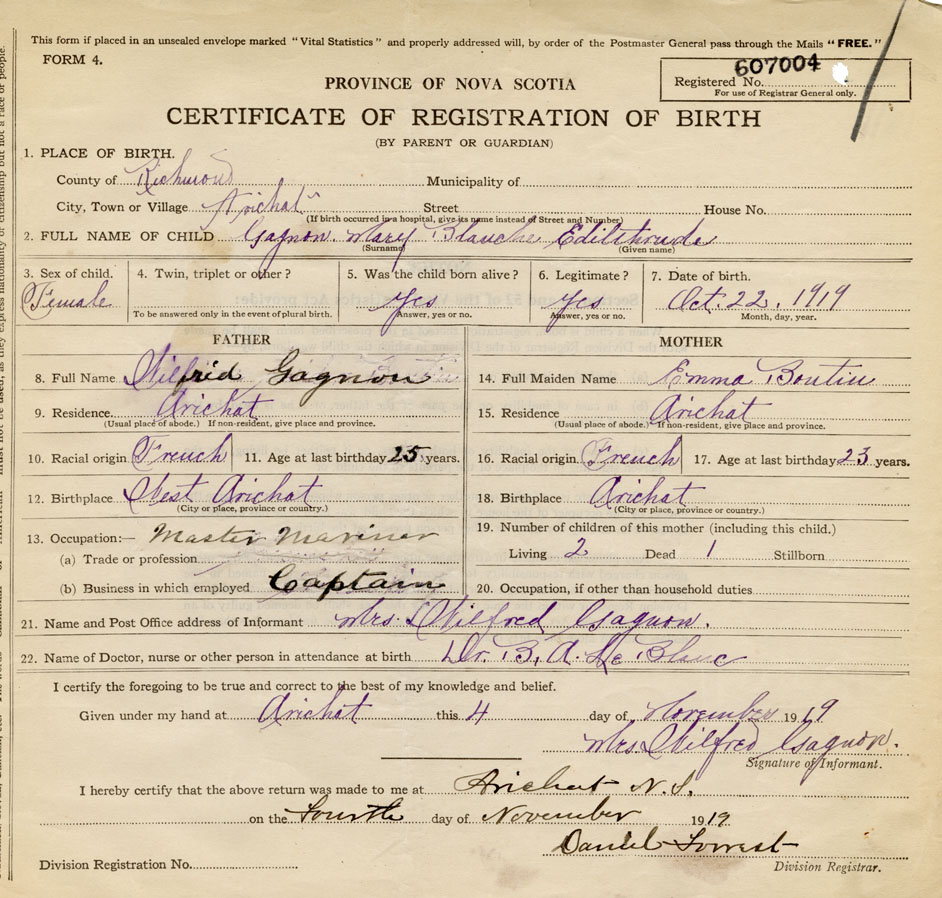 This form if placed in an unsealed envelope marked "Vital Statistics" and properly addressed will, by order of the Postmaster General pass through the Mails "FREE."
FORM 4.
607004
Registered No.
For use of Registrar General only.
PROVINCE OF NOVA SCOTIA
CERTIFICATE OF REGISTRATION OF BIRTH
(BY PARENT OR GUARDIAN)
1. PLACE OF BIRTH.
County of Richmond Municipality of
City, Town or Village Arichat Street House No.
(If birth occurred in a hospital, give its name instead of Street and Number)
2. FULL NAME OF CHILD Gagnon. Mary Blanche Edilthrude
(Surname) (Given name)
3. Sex of child. 4. Twin, triplet or other? 5. Was the child born alive? 6. Legitimate? 7. Date of birth.
Female Yes Yes Oct. 22. 1919
To be answered only in the event of plural birth. Answer, yes or no. Answer, yes or no. Month, day, year.
FATHER
8. Full Name Wilfrid Gagnon
9. Residence Arichat
(Usual place of abode.) If non-resident, give place and province.
10. Racial origin French 11. Age at last birthday 25 years.
12. Birthplace West Arichat
(City or place, province or country.)
13. Occupation:— Master Mariner
(a) Trade or profession
(b) Business in which employed Captain
MOTHER
14. Full Maiden Name Emma Boutin
15. Residence Arichat
(Usual place of abode.) If non-resident, give place and province.
16. Racial origin French 17. Age at last birthday 23 years.
18. Birthplace Arichat
(City or place, province or country.)
19. Number of children of this mother (including this child.)
Living 2 Dead 1 Stillborn
20. Occupation, if other than household duties
21. Name and Post Office address of Informant Mrs. Wilfred Gagnon.
22. Name of Doctor, nurse or other person in attendance at birth Dr. B. A. Le Blanc
I certify the foregoing to be true and correct to the best of my knowledge and belief.
Given under my hand at Arichat this 4 day of November 1919
Mrs. Wilfred Gagnon.
Signature of Informant.
I hereby certify that the above return was made to me at Arichat N.S.
on the Fourth day of November 1919.
Daniel Forrest
Division Registration No. Division Registrar.